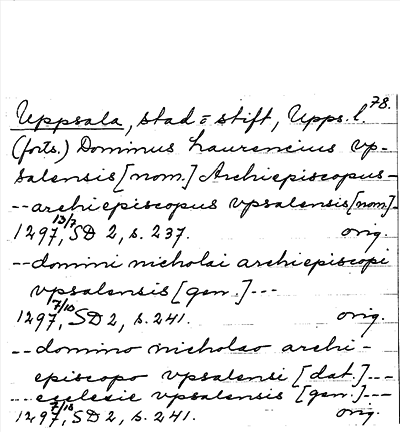 78.
Uppsala, stad = stift, Upps. l.
(forts.) Dominus Laurencius vp-
salensis [nom.] Archiepiscopus-
-- archiepiscopus vpsalensis [nom.]-
1297 13/7, SD 2, s. 237. orig.
-- domini nicholai archiepiscopi
vpsalensis [gen.] ---
1297 7/10, SD 2, s. 241. orig.
-- domino nicholao archi-
episcopo vpsalensi [dat.] ---
-- ecclesie vpsalensis [gen.] ---
1297 7/10, SD 2, s. 241. orig.